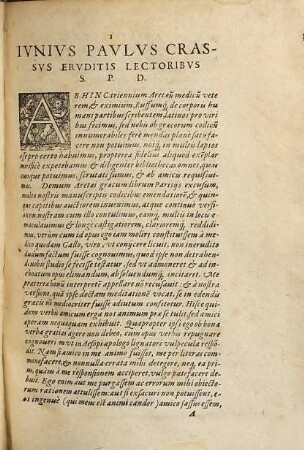 1
IVNIVS PAVLVS CRAS-
SVS ERVDITIS LECTORIBVS
S. P. D.
ABHINC triennium Aretæū medicū vete
rem & eximium, Ruffumq́; de corporis hu
mani partibus scribentem Latinos pro viri
bus fecimus, sed nobis ob græcorum codicū
innumerabiles ferè mendas planè satis fa-
cere non potuimus. nosq́; in multis lapsos
esse pro certo habuimus, propterea fidelius aliquod exēplar
nancisci expetebamus & diligenter bibliothecas omneis, quas
cunque potuimus, scrutati sumus, & ab amicis requisiui-
mus. Demum Aretæi græcum librum Parisijs excusum,
multò nostris manuscriptis codicibus emendatiorē, & quin
que capitibus auctiorem inuenimus, atque continuò versio-
nem nostram cum illo contulimus, eamq́; multis in locis e-
mendatiorem, clariorem, reddidi-
mus. verùm cum id opus ego domum mitto scire ex amico
quodam Gallo, viro, vt conijcere licuit, non inerudito du
dum factum fuisse cognouimus, quod ipse non detrahen-
di nobis studio se fecisse testatur sed vt admoneret & ad
opus elimandum, ad soluendumq́; incitaret. Me
præterea bonū interpretē appellare nō recusauit: & à nostra
versione, quā ipse doctam meditationē vocat, is in edendis
græcis nō mediocriter fuisse adiutum confitetur. Risce qui-
dem verbis amicè mecum actū fuisse nō solùm puto, sed amici
operam nequaquam exhibuit. Quapropter ipsi ego ob bona
verba gratias agere non debeo, cum opus verbis repugnare
cognouerim: vt in Aesopi apologo lignatori vulpecula respō
dit. Nam si amico in me animo fuisset, me per literas com-
monefacere, & nonnulla errata mihi detegere, neq́;, ea pri-
mùm, quàm à me responsionem acciperet, vulgo patefacere de
buit. Ego enim aut me purgassem ac errorum mihi obiecto-
rum rationem attulissem: aut si excusari non potuissent, e-
os ingenuè (qui meus est animi candor) amico fassus essem,
A